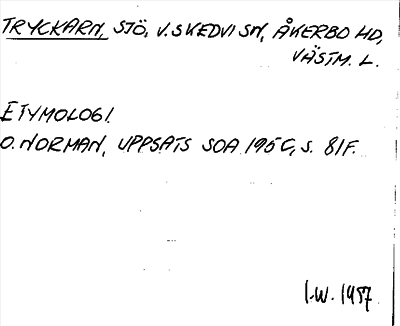 TRYCKARN, SJÖ, V. SKEDVI SN, ÅKERBO HD,
VÄSTM. L.
ETYMOLOGI.
O. NORMAN, UPPSATS SOA 195C, S. 81F.
I.W. 1957